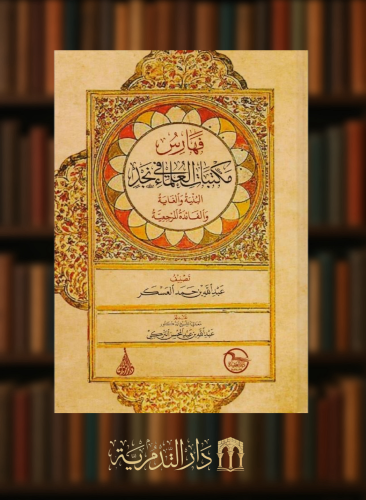 فهارس
مكتبات العلماء في نجد
البنية والغاية
والفائدة المرجعية
تصنيف
عبدالله بن حمد العسكر
عبدالله بن عبدالمحسن التركي
دار التدمرية